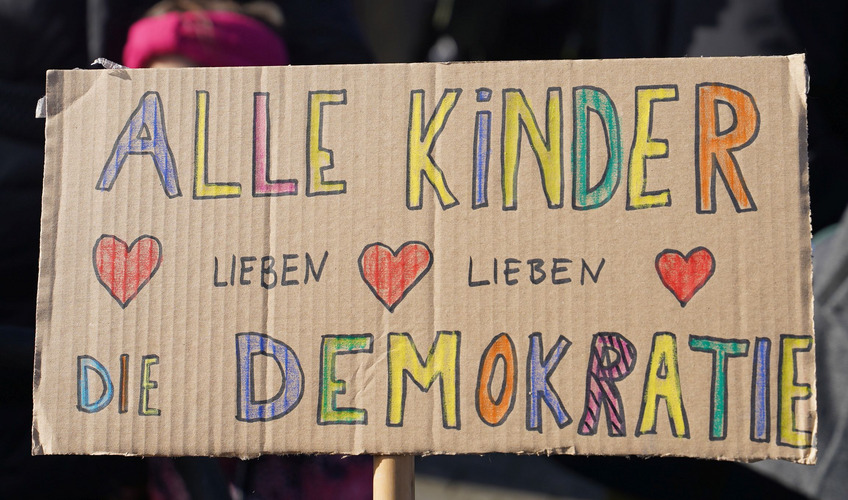 ALLE KiNDER
LIEBEN LIEBEN
DIE DEMOKRATIE